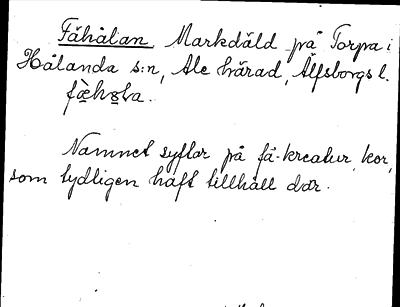 Fähålan Markdäld på Torpa i
Hålanda s:n, Ale härad, Älfsborgs l.
Namnet syftar på fä-kreatur, kor,
som tydligen haft tillhåll där.